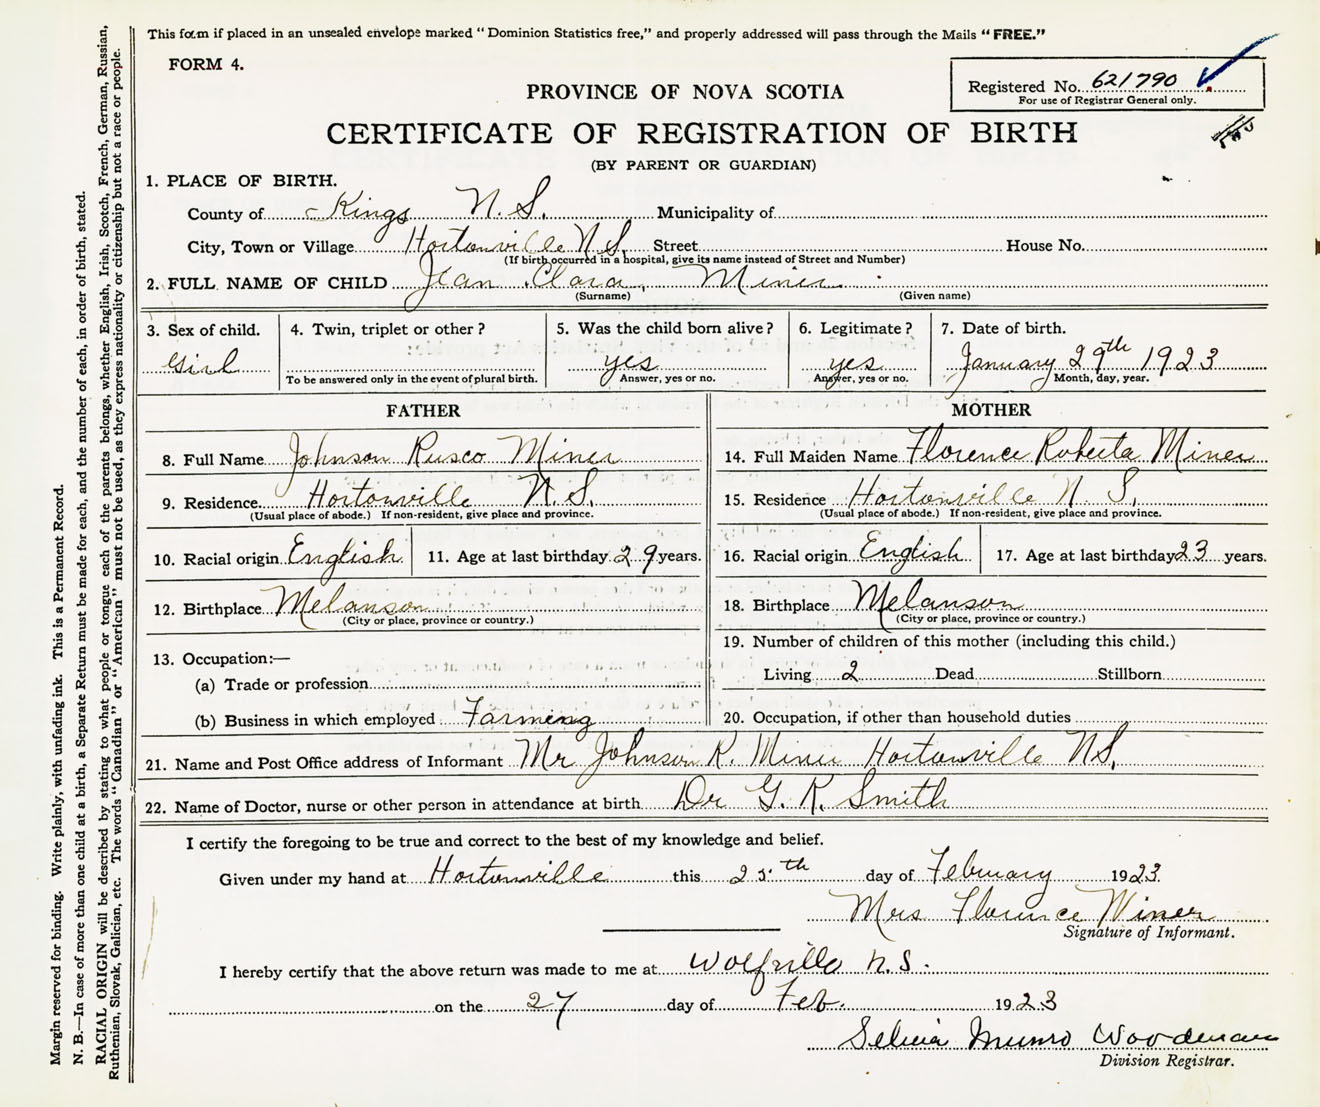 This form if placed in an unsealed envelope marked "Dominion Statistics free," and properly addressed will pass through the Mails "FREE."
FORM 4.
Registered No. 621790
For use of Registrar General only.
PROVINCE OF NOVA SCOTIA
CERTIFICATE OF REGISTRATION OF BIRTH
(BY PARENT OR GUARDIAN)
1. PLACE OF BIRTH.
County of Kings N. S. Municipality of
City, Town or Village Hortonville N S. Street House No.
(If birth occurred in a hospital, give its name instead of Street and Number)
2. FULL NAME OF CHILD Jean Clara Miner
(Surname) (Given name)
3. Sex of child. 4. Twin, triplet or other? 5. Was the child born alive? 6. Legitimate? 7. Date of birth.
Girl yes yes January 29th 1923
To be answered only in the event of plural birth. Answer, yes or no. Answer, yes or no. Month, day, year.
FATHER MOTHER
8. Full Name Johnson Rusco Miner 14. Full Maiden Name Florence Roberta Miner
9. Residence Hortonville N.S. 15. Residence Hortonville N. S.
(Usual place of abode.) If non-resident, give place and province. (Usual place of abode.) If non-resident, give place and province.
10. Racial origin English 11. Age at last birthday 29 years. 16. Racial origin English 17. Age at last birthday 23 years.
12. Birthplace Melanson 18. Birthplace Melanson
(City or place, province or country.) (City or place, province or country.)
19. Number of children of this mother (including this child.)
13. Occupation:—
Living 2 Dead Stillborn
(a) Trade or profession
(b) Business in which employed Farmeng 20. Occupation, if other than household duties
21. Name and Post Office address of Informant Mr Johnson R. Miner Hortonville NS.
22. Name of Doctor, nurse or other person in attendance at birth Dr G. K. Smith
I certify the foregoing to be true and correct to the best of my knowledge and belief.
Given under my hand at Hortonville this 25th day of February 1923
Mrs Florence Miner
Signature of Informant.
I hereby certify that the above return was made to me at Wolfville N.S.
on the 27 day of Feb. 1923
Selina Munro Woodman
Division Registrar.
Margin reserved for binding. Write plainly, with unfading ink. This is a Permanent Record.
N. B.—In case of more than one child at a birth, a Separate Return must be made for each, and the number of each, in order of birth, stated.
RACIAL ORIGIN will be described by stating to what people or tongue each of the parents belongs, whether English, Irish, Scotch, French, German, Russian,
Ruthenian, Slovak, Galician, etc. The words "Canadian" or "American" must not be used, as they express nationality or citizenship but not a race or people.